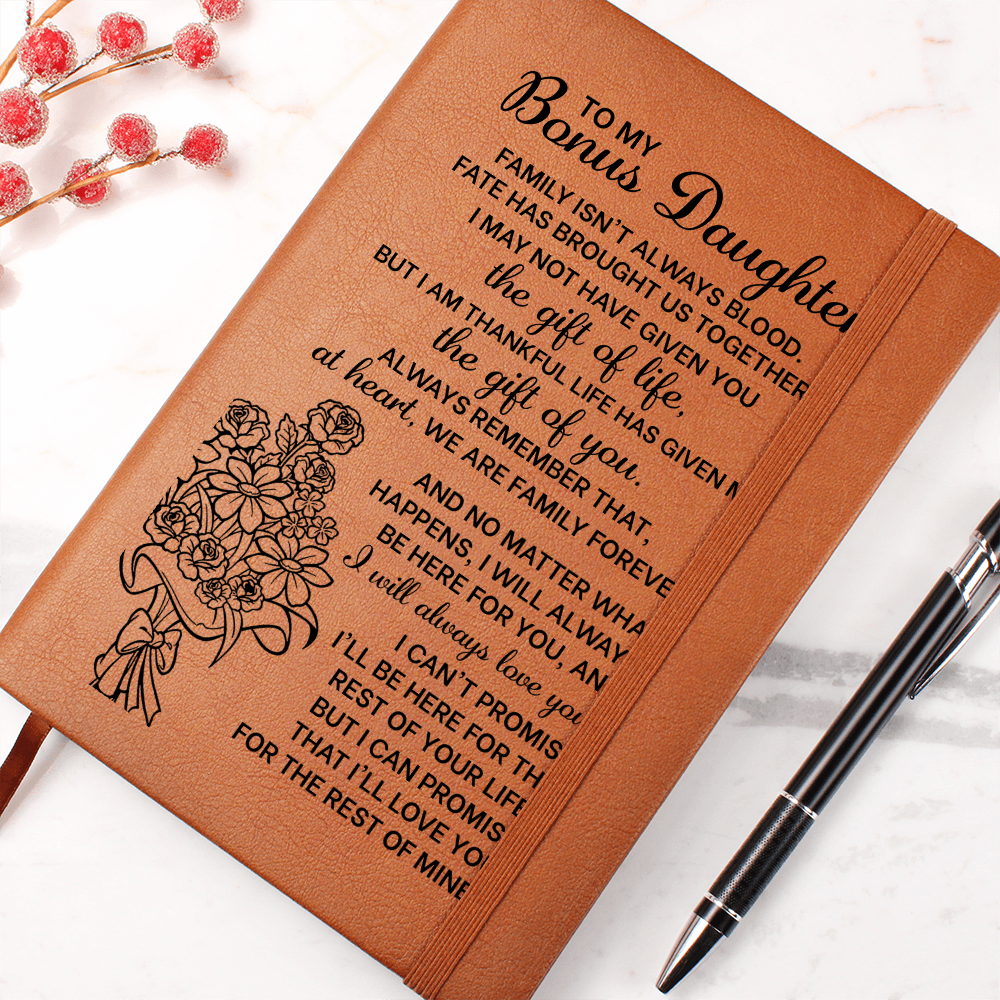 TO MY
Bonus Daughter
FAMILY ISN'T ALWAYS BLOOD.
FATE HAS BROUGHT US TOGETHER
I MAY NOT HAVE GIVEN YOU
the gift of life,
BUT I AM THANKFUL LIFE HAS GIVEN M
the gift of you.
ALWAYS REMEMBER THAT,
at heart, WE ARE FAMILY FOREVE
AND NO MATTER WHA
HAPPENS, I WILL ALWAY
BE HERE FOR YOU, AN
I will always love you
I CAN'T PROMIS
I'LL BE HERE FOR TH
REST OF YOUR LIFE
BUT I CAN PROMIS
THAT I'LL LOVE YO
FOR THE REST OF MINE